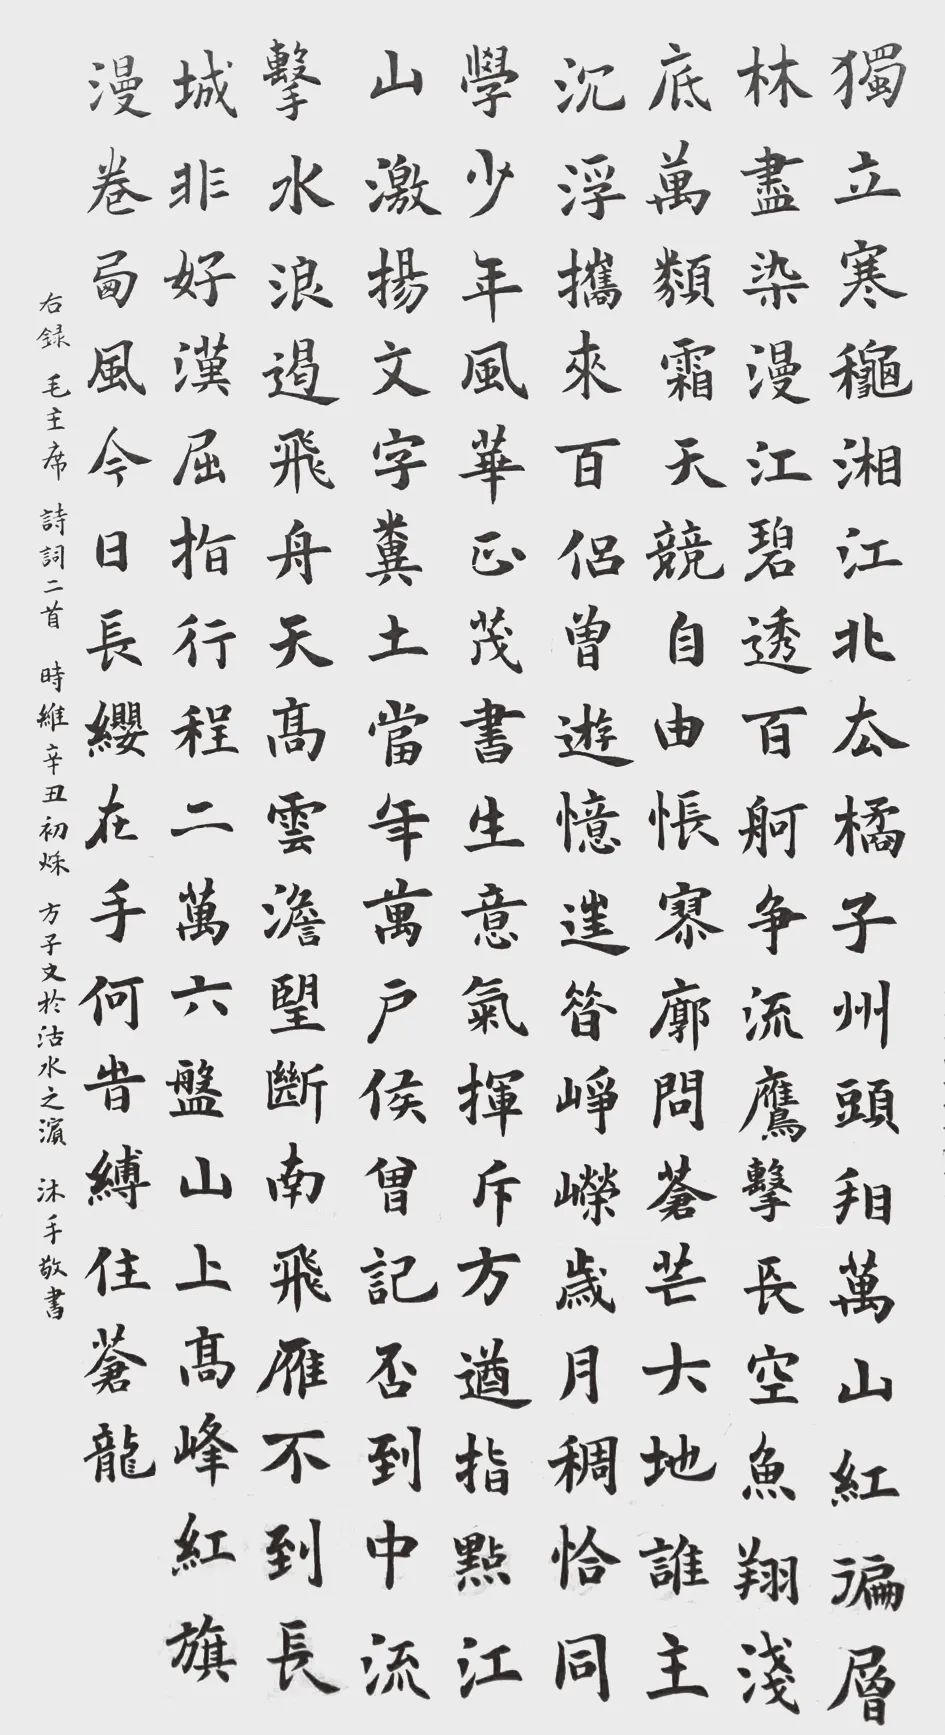 獨立寒龝湘江北厺橘子州頭看萬山紅徧層
林盡染漫江碧透百舸争流鷹擊長空魚翔淺
底萬類霜天競自由悵寥廓問蒼芒大地誰主
沉浮攜來百侣曾遊憶往昔崢嶸歲月稠恰同
學少年風華正茂書生意氣揮斥方遒指點江
山激揚文字糞土當年萬户侯曾記否到中流
擊水浪遏飛舟天髙雲澹望斷南飛雁不到長
城非好漢屈指行程二萬六盤山上髙峰紅旗
漫卷西風今日長纓在手何旹縛住蒼龍
右録 毛主席 詩詞二首 時維辛丑初烁 方子文於沽水之濵 沐手敬書